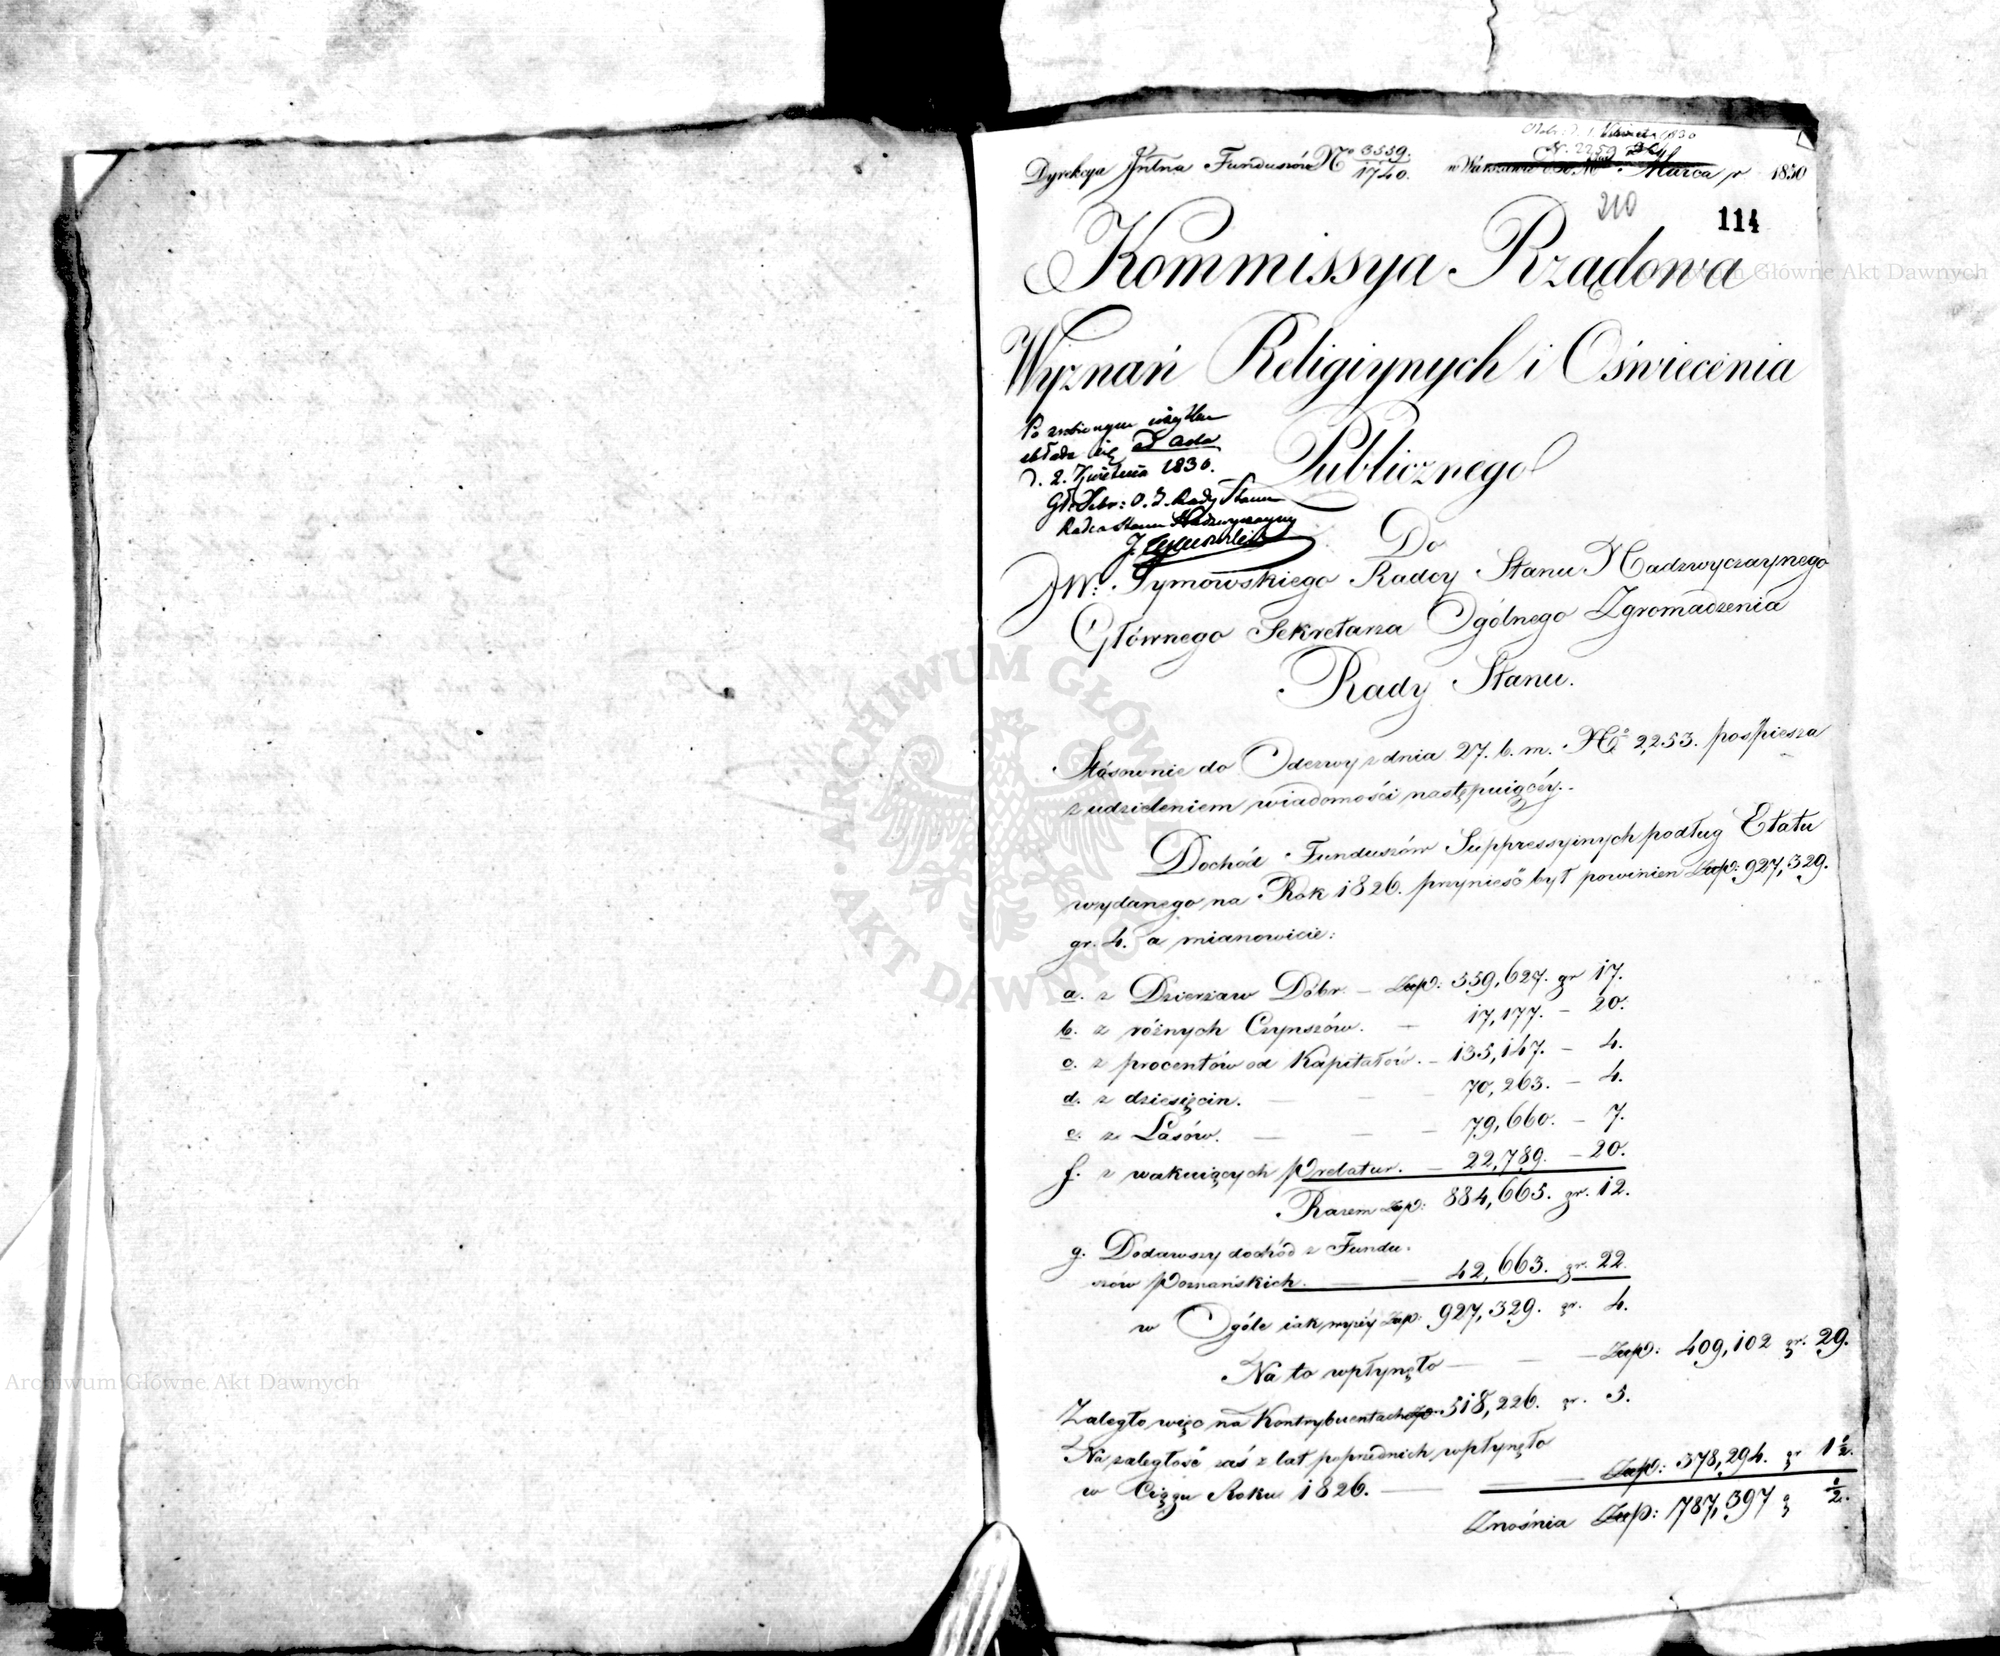 Dyrekcya Jntna Funduszów No 3559. / 1740. w Warszawie d. 30. Marca r 1830
N. 2259
210
114
Kommissya Rządowa
Wyznań Religiynych i Oświecenia
Publicznego
Po zrobionym użytku
składa się ad acta
D. 2. Kwietnia 1830.
Gł: Sekr: O. Z. Rady Stanu
Radca Stanu Nadzwyczayny
J. Tymowski
Do
JW: Tymowskiego Radcy Stanu Nadzwyczaynego
Głównego Sekretarza Ogólnego Zgromadzenia
Rady Stanu.
Stósownie do Odezwy z dnia 27. b. m. No 2,253. pospiesza
z udzieleniem wiadomości następuiącéy.
Dochód Funduszów Suppressyinych podług Etatu
wydanego na Rok 1826. przynieść był powinien Złp: 927,329.
gr. 4. a mianowicie:
a. z Dzierżaw Dóbr. — Złp: 559,627. gr 17.
b. z różnych Czynszów. — 17,177. — 20.
c. z procentów od Kapitałów. — 135,147. — 4.
d. z dziesięcin. — — — 70,263. — 4.
e. z Lasów. — — — 79,660. — 7.
f. z wakuiących Prelatur. — 22,789. — 20.
Razem Złp: 884,665. gr. 12.
g. Dodawszy dochód z Fundu-
szów Poznańskich. — — 42,663. gr. 22.
w Ogóle iak wyżéy Złp: 927,329. gr. 4.
Na to wpłynęło — — — Złp: 409,102 gr. 29.
Zaległo więc na Kontrybuentach Złp: 518,226. gr. 5.
Na zaległość zaś z lat poprzednich wpłynęło
w Ciągu Roku 1826. — — — Złp: 378,294. gr 1½.
Znośnia Złp: 787,397 g ½.
Archiwum Główne Akt Dawnych
ARCHIWUM GŁÓWNE
AKT DAWNYCH
Archiwum Główne Akt Dawnych